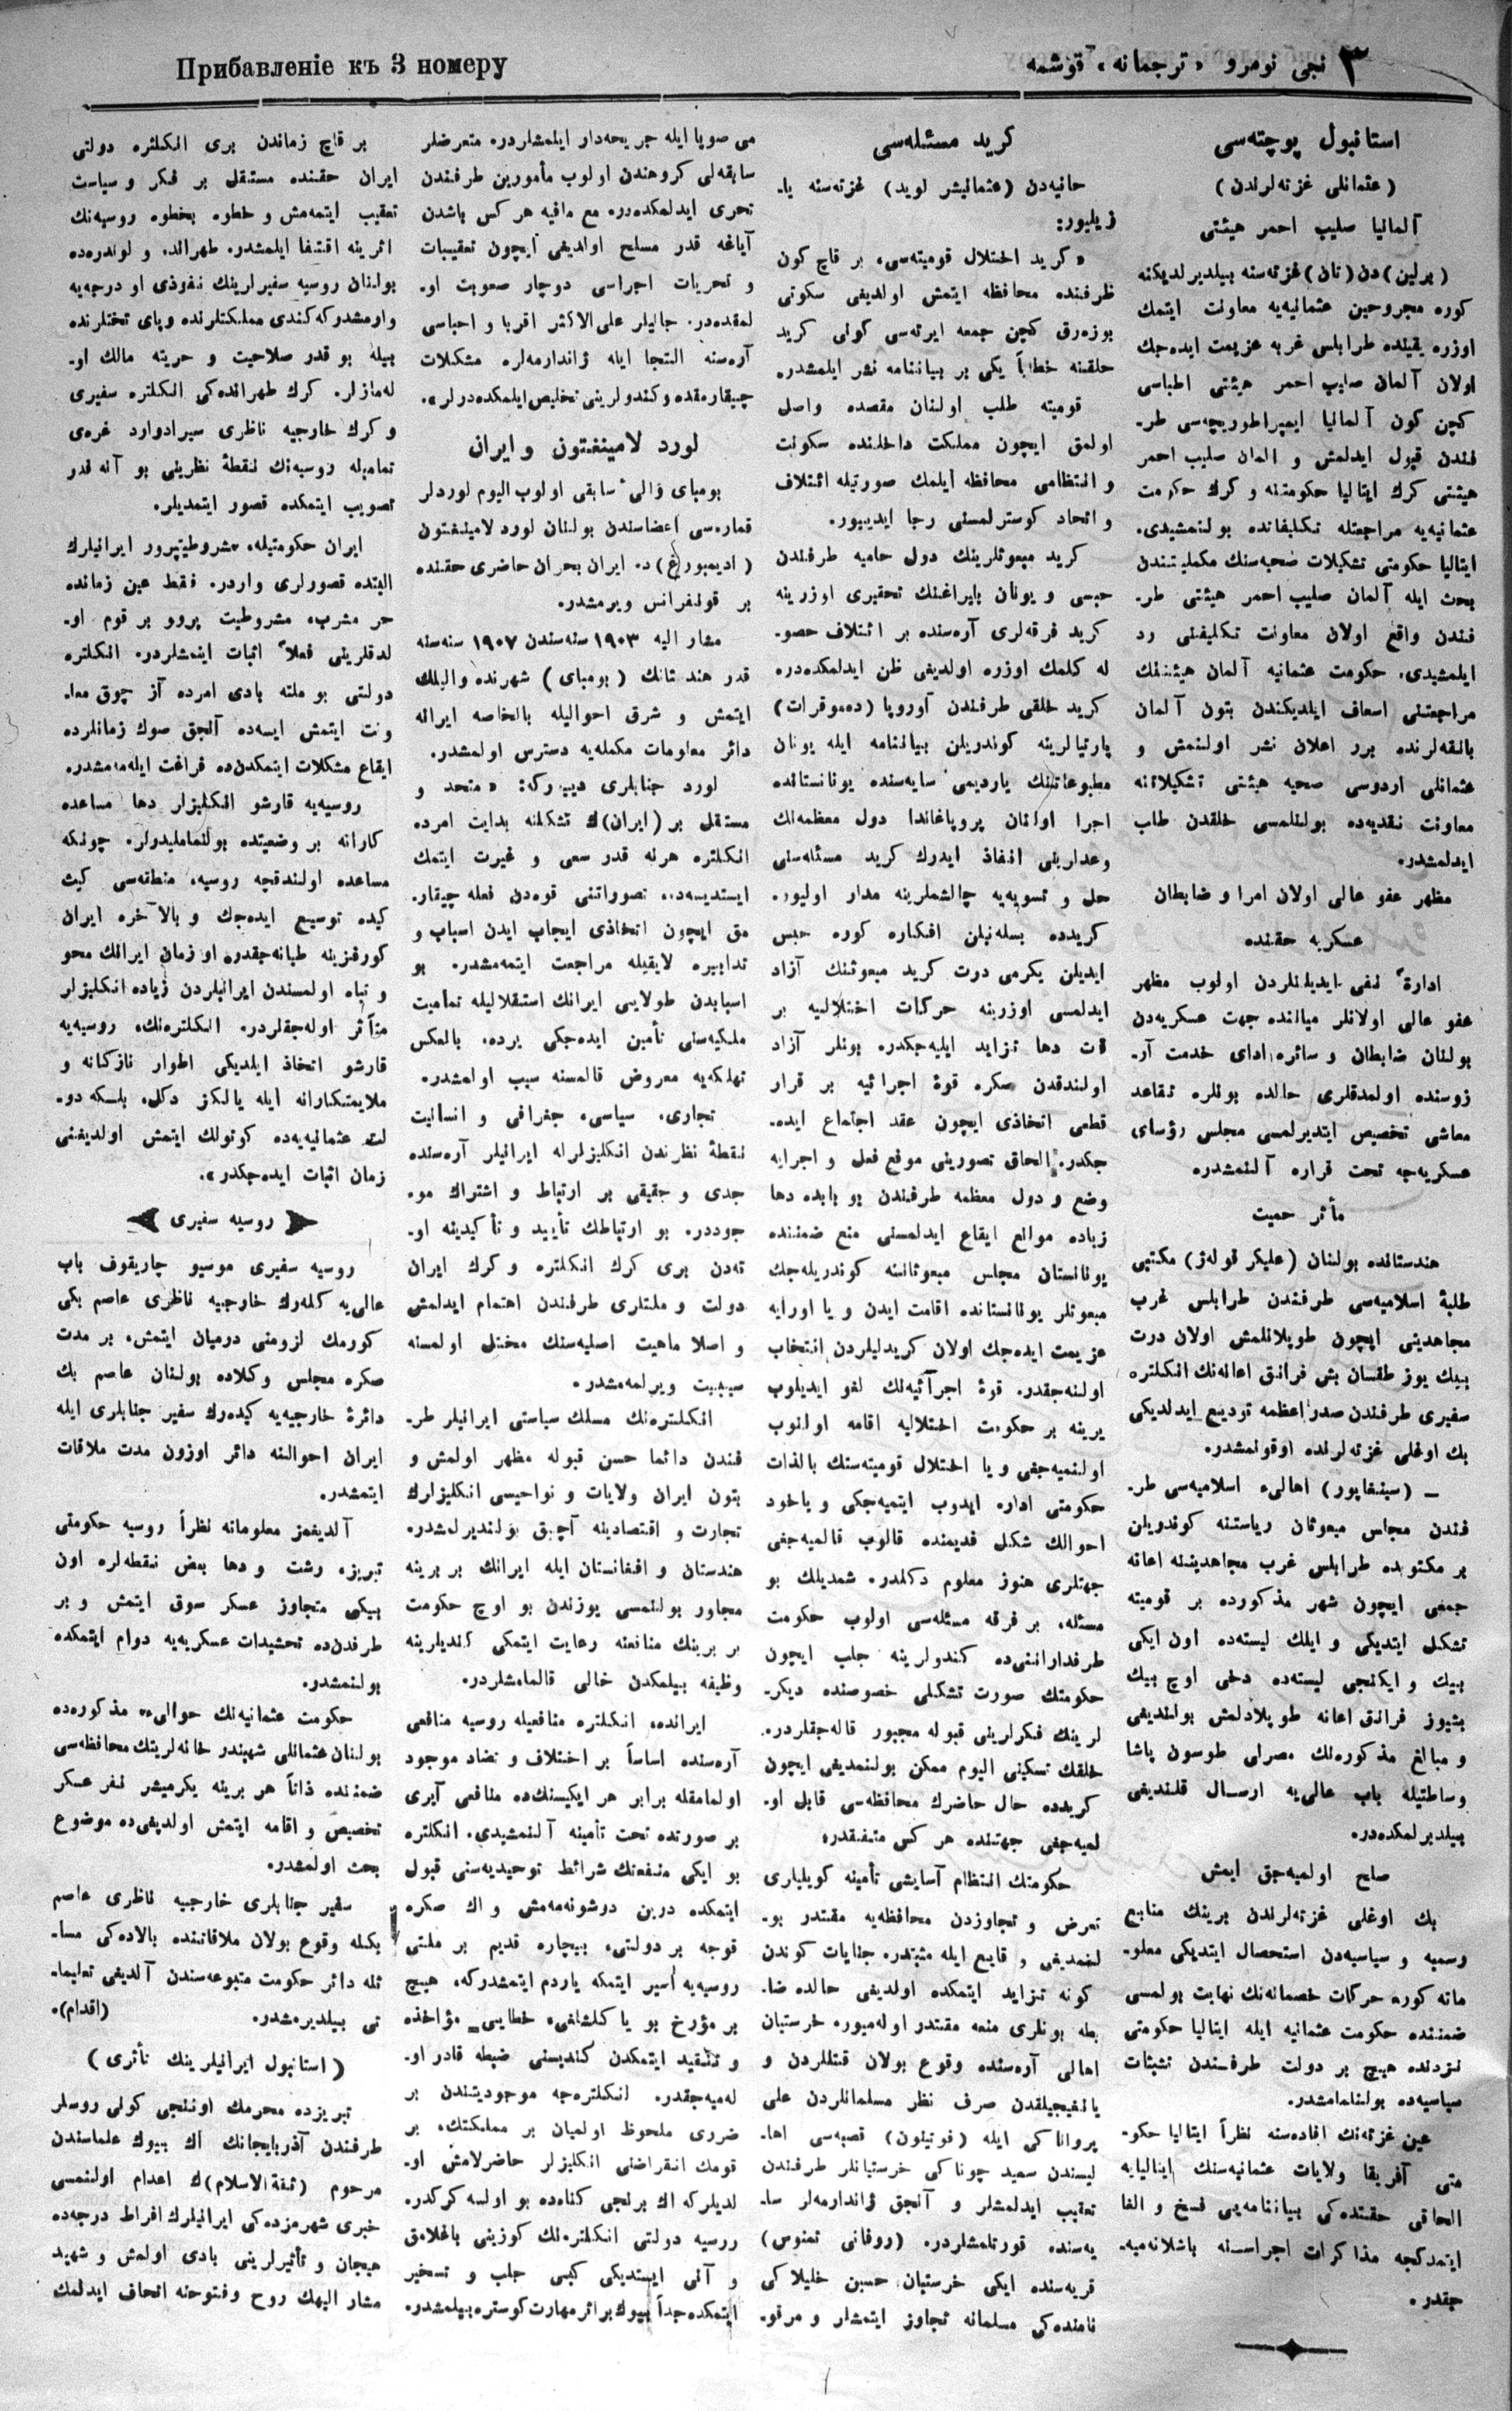 ۳ نجی نومرو «ترجمانه» قوشمه
Прибавленіе къ 3 номеру
استانبول پوچته‌سی
(عثمانلی غزته‌لرندن)
آلمانیا صلیب احمر هیئتی
(برلین) دن (تان) غزته‌سنه بیلدیرلدیکنه
کوره مجروحین عثمانیه‌یه معاونت ایتمك
اوزره یقینده طرابلس غربه عزیمت ایده‌جك
اولان آلمان صلیب احمر هیئتی اطباسی
کچن کون آلمانیا ایمپراطوریچه‌سی طر-
فندن قبول ایدلمش و المان صلیب احمر
هیئتی کرك ایتالیا حکومتنه و کرك حکومت
عثمانیه‌یه مراجعتله تکلیفانده بولنمشیدی.
ایتالیا حکومتی تشکیلات صحیه‌سنك مکملیتندن
بحث ایله آلمان صلیب احمر هیئتی طر-
فندن واقع اولان معاونت تکلیفنی رد
ایلمشیدی. حکومت عثمانیه آلمان هیئتنك
مراجعتنی اسعاف ایلدیکندن بتون آلمان
بانقه‌لرنده برر اعلان نشر اولنمش و
عثمانلی اردوسی صحیه هیئتی تشکیلاتنه
معاونت نقدیه‌ده بولنلمسی خلقدن طلب
ایدلمشدر.
مظهر عفو عالی اولان امرا و ضابطان
عسکریه حقنده
ادارةً نفی ایدیلنلردن اولوب مظهر
عفو عالی اولانلر میاننده جهت عسکریه‌دن
بولنان ضابطان و سائره ادای خدمت آر-
زوسنده اولمدقلری حالده بونلره تقاعد
معاشی تخصیص ایتدیرلمسی مجلس رؤسای
عسکریه‌جه تحت قراره آلنمشدر.
مأثر حمیت
هندستانده بولنان (علیکر قوله‌ژ) مکتبی
طلبهٔ اسلامیه‌سی طرفندن طرابلس غرب
مجاهدینی ایچون طوپلانلمش اولان درت
بیك یوز طقسان بش فرانق اعانه‌نك انکلتره
سفیری طرفندن صدر اعظمه تودیع ایدلدیکی
بك اوغلی غزته‌لرنده اوقونمشدر.
— (سینغاپور) اهالیء اسلامیه‌سی طر-
فندن مجلس مبعوثان ریاستنه کوندریلن
بر مکتوبده طرابلس غرب مجاهدیننه اعانه
جمعی ایچون شهر مذکورده بر قومیته
تشکل ایتدیکی و ایلك لیسته‌ده اون ایکی
بیك و ایکنجی لیسته‌ده دخی اوچ بیك
بشیوز فرانق اعانه طوپلادلمش بولندیغی
و مبالغ مذکوره‌نك مصرلی طوسون پاشا
وساطتیله باب عالی‌یه ارسال قلندیغی
بیلدیرلمکده‌در.
صلح اولمیه‌جق ایمش
بك اوغلی غزته‌لرندن برینك منابع
رسمیه و سیاسیه‌دن استحصال ایتدیکی معلو-
ماته کوره حرکات خصمانه‌نك نهایت بولمسی
ضمننده حکومت عثمانیه ایله ایتالیا حکومتی
نزدنده هیچ بر دولت طرفندن تشبثات
سیاسیه‌ده بولنلمامشدر.
عین غزته‌نك افاده‌سنه نظراً ایتالیا حکو-
متی آفریقا ولایات عثمانیه‌سنك ایتالیایه
الحاقی حقنده‌کی بیاننامه‌یی فسخ و الغا
ایتمدکجه مذاکرات اجراسنه باشلانه‌میه-
جقدر.
کرید مسئله‌سی
حانیه‌دن (عثمانیشر لوید) غزته‌سنه یا-
زیلیور:
«کرید اختلال قومیته‌سی، بر قاچ کون
ظرفنده محافظه ایتمش اولدیغی سکوتی
بوزه‌رق کچن جمعه ایرته‌سی کونی کرید
خلقنه خطاباً یکی بر بیاننامه نشر ایلمشدر.
قومیته طلب اولنان مقصده واصل
اولمق ایچون مملکت داخلنده سکونت
و انتظامی محافظه ایلمك صورتیله ائتلاف
و اتحاد کوسترلمسنی رجا ایدییور.
کرید مبعوثلرینك دول حامیه طرفندن
حبسی و یونان بایراغنك تحقیری اوزرینه
کرید فرقه‌لری آره‌سنده بر ائتلاف حصو-
له کلمك اوزره اولدیغی ظن ایدلمکده‌در.
کرید خلقی طرفندن آوروپا (ده‌موقرات)
پارتیالرینه کوندریلن بیاننامه ایله یونان
مطبوعاتنك یاردیمی سایه‌سنده یونانستانده
اجرا اولنان پروپاغاندا دول معظمه‌نك
وعدلرینی انفاذ ایدرك کرید مسئله‌سنی
حل و تسویه‌یه چالشملرینه مدار اولیور.
کریدده بسله‌نیلن افکاره کوره حبس
ایدیلن یکرمی درت کرید مبعوثنك آزاد
ایدلمسی اوزرینه حرکات اختلالیه بر
قات دها تزاید ایلیه‌جکدر. بونلر آزاد
اولندقدن صکره قوهٔ اجرائیه بر قرار
قطعی اتخاذی ایچون عقد اجتماع ایده-
جکدر. الحاق تصورینی موقع فعل و اجرایه
وضع و دول معظمه طرفندن بو بابده دها
زیاده موانع ایقاع ایدلمسنی منع ضمننده
یونانستان مجلس مبعوثاننه کوندریله‌جك
مبعوثلر یونانستانده اقامت ایدن و یا اورایه
عزیمت ایده‌جك اولان کریدلیلردن انتخاب
اولنه‌جقدر. قوهٔ اجرآئیه‌نك لغو ایدیلوب
یرینه بر حکومت اختلالیه اقامه اولنوب
اولنمیه‌جغی و یا اختلال قومیته‌سنك بالذات
حکومتی اداره ایدوب ایتمیه‌جکی و یاخود
احوالك شکل قدیمنده قالوب قالمیه‌جغی
جهتلری هنوز معلوم دکلدر. شمدیلك بو
مسئله، بر فرقه مسئله‌سی اولوب حکومت
طرفدارانی‌ده کندولرینه جلب ایچون
حکومتك صورت تشکلی خصوصنده دیکر-
لرینك فکرلرینی قبوله مجبور قاله‌جقلردر.
خلقك تسکینی الیوم ممکن بولنمدیغی ایچون
کریدده حال حاضرك محافظه‌سی قابل او-
لمیه‌جغی جهتنده هر کس متفقدر.
حکومتك انتظام آسایشی تأمینه کویلیلری
تعرض و تجاوزدن محافظه‌یه مقتدر بو-
لنمدیغی و قایع ایله مثبتدر. جنایات کوندن
کونه تزاید ایتمکده اولدیغی حالده ضا-
بطه بونلری منعه مقتدر اوله‌میور. خرستیان
اهالی آره‌سنده وقوع بولان قتللردن و
یانغینجیلقدن صرف نظر مسلمانلردن علی
پرواناکی ایله (فوتینون) قصبه‌سی اها-
لیسندن سعید چوناکی خرستیانلر طرفندن
تعقیب ایدلمشلر و آنجق ژاندارمه‌لر سا-
یه‌سنده قورتلمشلردر. (روفانی تمنوس)
قریه‌سنده ایکی خرستیان حسین خلیلاکی
نامنده‌کی مسلمانه تجاوز ایتمشلر و مرقو-
می صوپا ایله جریحه‌دار ایلمشلردر. متعرضلر
سابقه‌لی کروهندن اولوب مأمورین طرفندن
تحری ایدلمکده‌در. مع مافیه هر کس باشدن
آیاغه قدر مسلح اولدیغی ایچون تعقیبات
و تحریات اجراسی دوچار صعوبت او-
لمقده‌در. جانیلر علی‌الاکثر اقربا و احباسی
آره‌سنه التجا ایله ژاندارمه‌لره مشکلات
چیقارمقده و کندولرینی تخلیص ایلمکده‌درلر».
لورد لامینغتون و ایران
بومبای والیٔ سابقی اولوب الیوم لوردلر
قماره‌سی اعضاسندن بولنان لورد لامینغتون
(ادیمبورغ) ده ایران بحران حاضری حقنده
بر قونفرانس ویرمشدر.
مشار الیه ۱۹۰۳ سنه‌سندن ۱۹۰۷ سنه‌سنه
قدر هندستانك (بومبای) شهرنده والیلك
ایتمش و شرق احوالیله بالخاصه ایرانه
دائر معلومات مکمله‌یه دسترس اولمشدر.
لورد جنابلری دییورکه: «متحد و
مستقل بر (ایران)ك تشکلنه بدایت امرده
انکلتره هرنه قدر سعی و غیرت ایتمك
ایستدیسه‌ده، تصوراتنی قوه‌دن فعله چیقار-
مق ایچون اتخاذی ایجاب ایدن اسباب و
تدابیره لایقیله مراجعت ایتمه‌مشدر. بو
اسبابدن طولایی ایرانك استقلالیله تمامیت
ملکیه‌سنی تأمین ایده‌جکی یرده، بالعکس
تهلکه‌یه معروض قالمسنه سبب اولمشدر.
تجاری، سیاسی، جغرافی و انسانیت
نقطهٔ نظرندن انکلیزلرله ایرانیلر آره‌سنده
جدی و حقیقی بر ارتباط و اشتراك مو-
جوددر. بو ارتباطك تأیید و تأکیدینه او-
ته‌دن بری کرك انکلتره و کرك ایران
دولت و ملتلری طرفندن اهتمام ایدلمش
و اصلا ماهیت اصلیه‌سنك مختل اولمسنه
سببیت ویرلمه‌مشدر.
انکلتره‌نك مسلك سیاستی ایرانیلر طر-
فندن دائما حسن قبوله مظهر اولمش و
بتون ایران ولایات و نواحیسی انکلیزلرك
تجارت و اقتصادینه آچیق بولندیرلمشدر.
هندستان و افغانستان ایله ایرانك بر برینه
مجاور بولنمسی یوزندن بو اوچ حکومت
بر برینك منافعنه رعایت ایتمکی کندیلرینه
وظیفه بیلمکدن خالی قالمامشلردر.
ایرانده، انکلتره منافعیله روسیه منافعی
آره‌سنده اساساً بر اختلاف و تضاد موجود
اولمامقله برابر هر ایکیسنك‌ده منافعی آیری
بر صورتده تحت تأمینه آلنمشیدی. انکلتره
بو ایکی منفعتك شرائط توحیدیه‌سنی قبول
ایتمکده درین دوشونه‌مه‌مش و اك صکره
قوجه بر دولتی، بیچاره قدیم بر ملتی
روسیه‌یه اسیر ایتمکه یاردم ایتمشدرکه، هیچ
بر مؤرخ بو یاکلشلغی، خطایی مؤاخذه
و تنقید ایتمکدن کندیسنی ضبطه قادر او-
له‌میه‌جقدر. انکلتره‌جه موجودیتندن بر
ضرری ملحوظ اولمیان بر مملکتك، بر
قومك انقراضنی انکلیزلر حاضرلامش او-
لدیلرکه اك برنجی کناه‌ده بو اولسه کرکدر.
روسیه دولتی انکلتره‌نك کوزینی باغلامق
و آنی ایستدیکی کبی جلب و تسخیر
ایتمکده جداً بیوك بر اثر مهارت کوستره‌بیلمشدر.
بر قاچ زماندن بری انکلتره دولتی
ایران حقنده مستقل بر فکر و سیاست
تعقیب ایتمه‌مش و خطوه بخطوه روسیه‌نك
اثرینه اقتفا ایلمشدر. طهرانده و لوندره‌ده
بولنان روسیه سفیرلرینك نفوذی او درجه‌یه
وارمشدرکه کندی مملکتلرنده و پای تختلرنده
بیله بو قدر صلاحیت و حریته مالك او-
له‌مازلر. کرك طهرانده‌کی انکلتره سفیری
و کرك خارجیه ناظری سیر ادوارد غره‌ی
تمامیله روسیه‌نك نقطهٔ نظرینی بو آنه قدر
تصویب ایتمکده قصور ایتمدیلر.
ایران حکومتیله، مشروطیتپرور ایرانیلرك
البتده قصورلری واردر. فقط عین زمانده
حر مشرب، مشروطیت پرور بر قوم او-
لدقلرینی فعلاً اثبات ایتمشلردر. انکلتره
دولتی بو ملته بادی امرده آز چوق معا-
ونت ایتمش ایسه‌ده آنجق صوك زمانلرده
ایقاع مشکلات ایتمکدن‌ده فراغت ایله‌مه‌مشدر.
روسیه‌یه قارشو انکلیزلر دها مساعده
کارانه بر وضعیتده بولنمامالیدرلر. چونکه
مساعده اولندقجه روسیه، منطقه‌سی کیت
کیده توسیع ایده‌جك و بالآخره ایران
کورفزینه طیانه‌جقدر. او زمان ایرانك محو
و تباه اولمسندن ایرانیلردن زیاده انکلیزلر
متأثر اوله‌جقلردر. انکلتره‌نك، روسیه‌یه
قارشو اتخاذ ایلدیکی اطوار نازکانه و
ملایمتکارانه ایله یالکز دکل، بلکه دو-
لت عثمانیه‌یه‌ده کوتولك ایتمش اولدیغنی
زمان اثبات ایده‌جکدر».
روسیه سفیری
روسیه سفیری موسیو چاریقوف باب
عالی‌یه کله‌رك خارجیه ناظری عاصم بکی
کورمك لزومنی درمیان ایتمش، بر مدت
صکره مجلس وکلاده بولنان عاصم بك
دائرهٔ خارجیه‌یه کیده‌رك سفیر جنابلری ایله
ایران احوالنه دائر اوزون مدت ملاقات
ایتمشدر.
آلدیغمز معلوماته نظراً روسیه حکومتی
تبریزه، رشت و دها بعض نقطه‌لره اون
بیکی متجاوز عسکر سوق ایتمش و بر
طرفدن‌ده تحشیدات عسکریه‌یه دوام ایتمکده
بولنمشدر.
حکومت عثمانیه‌نك حوالیء مذکوره‌ده
بولنان عثمانلی شهبندر خانه‌لرینك محافظه‌سی
ضمننده ذاتاً هر برینه یکرمیشر نفر عسکر
تخصیص و اقامه ایتمش اولدیغی‌ده موضوع
بحث اولمشدر.
سفیر جنابلری خارجیه ناظری عاصم
بکله وقوع بولان ملاقاتنده بالاده‌کی مسا-
ئله دائر حکومت متبوعه‌سندن آلدیغی تعلیما-
تی بیلدیرمشدر. (اقدام).
(استانبول ایرانیلرینك تأثری)
تبریزده محرمك اوننجی کونی روسلر
طرفندن آذربایجانك اك بیوك علماسندن
مرحوم (ثقة الاسلام)ك اعدام اولنمسی
خبری شهرمزده‌کی ایرانیلرك افراط درجه‌ده
هیجان و تأثیرلرینی بادی اولمش و شهید
مشار الیهك روح و فتوحنه اتحاف ایدلمك